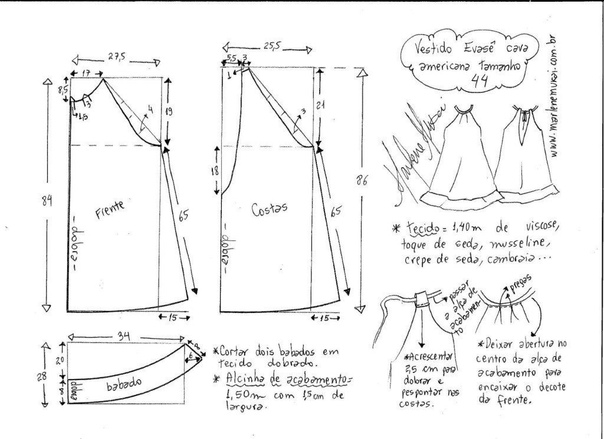 Vestido Evasê cava
americana Tamanho
44
www.marlenemukai.com.br
Marlene Mukai
27,5
17
8,5
3
1,5
4
19
84
Frente
dobra
65
15
25,5
5,5
3
1
21
3
18
86
Costas
dobra
65
15
* Tecido = 1,40m de viscose,
toque de seda, musseline,
crepe de seda, cambraia...
34
20
28
8
dobra
babado
* Cortar dois babados em
tecido dobrado.
* Alcinha de acabamento =
1,50m com 1,5cm de
largura.
passar
a alça de
acabamen-
to
* Acrescentar
2,5 cm para
dobrar e
pespontar nas
costas.
pregas
* Deixar abertura no
centro da alça de
acabamento para
encaixar o decote
da frente.